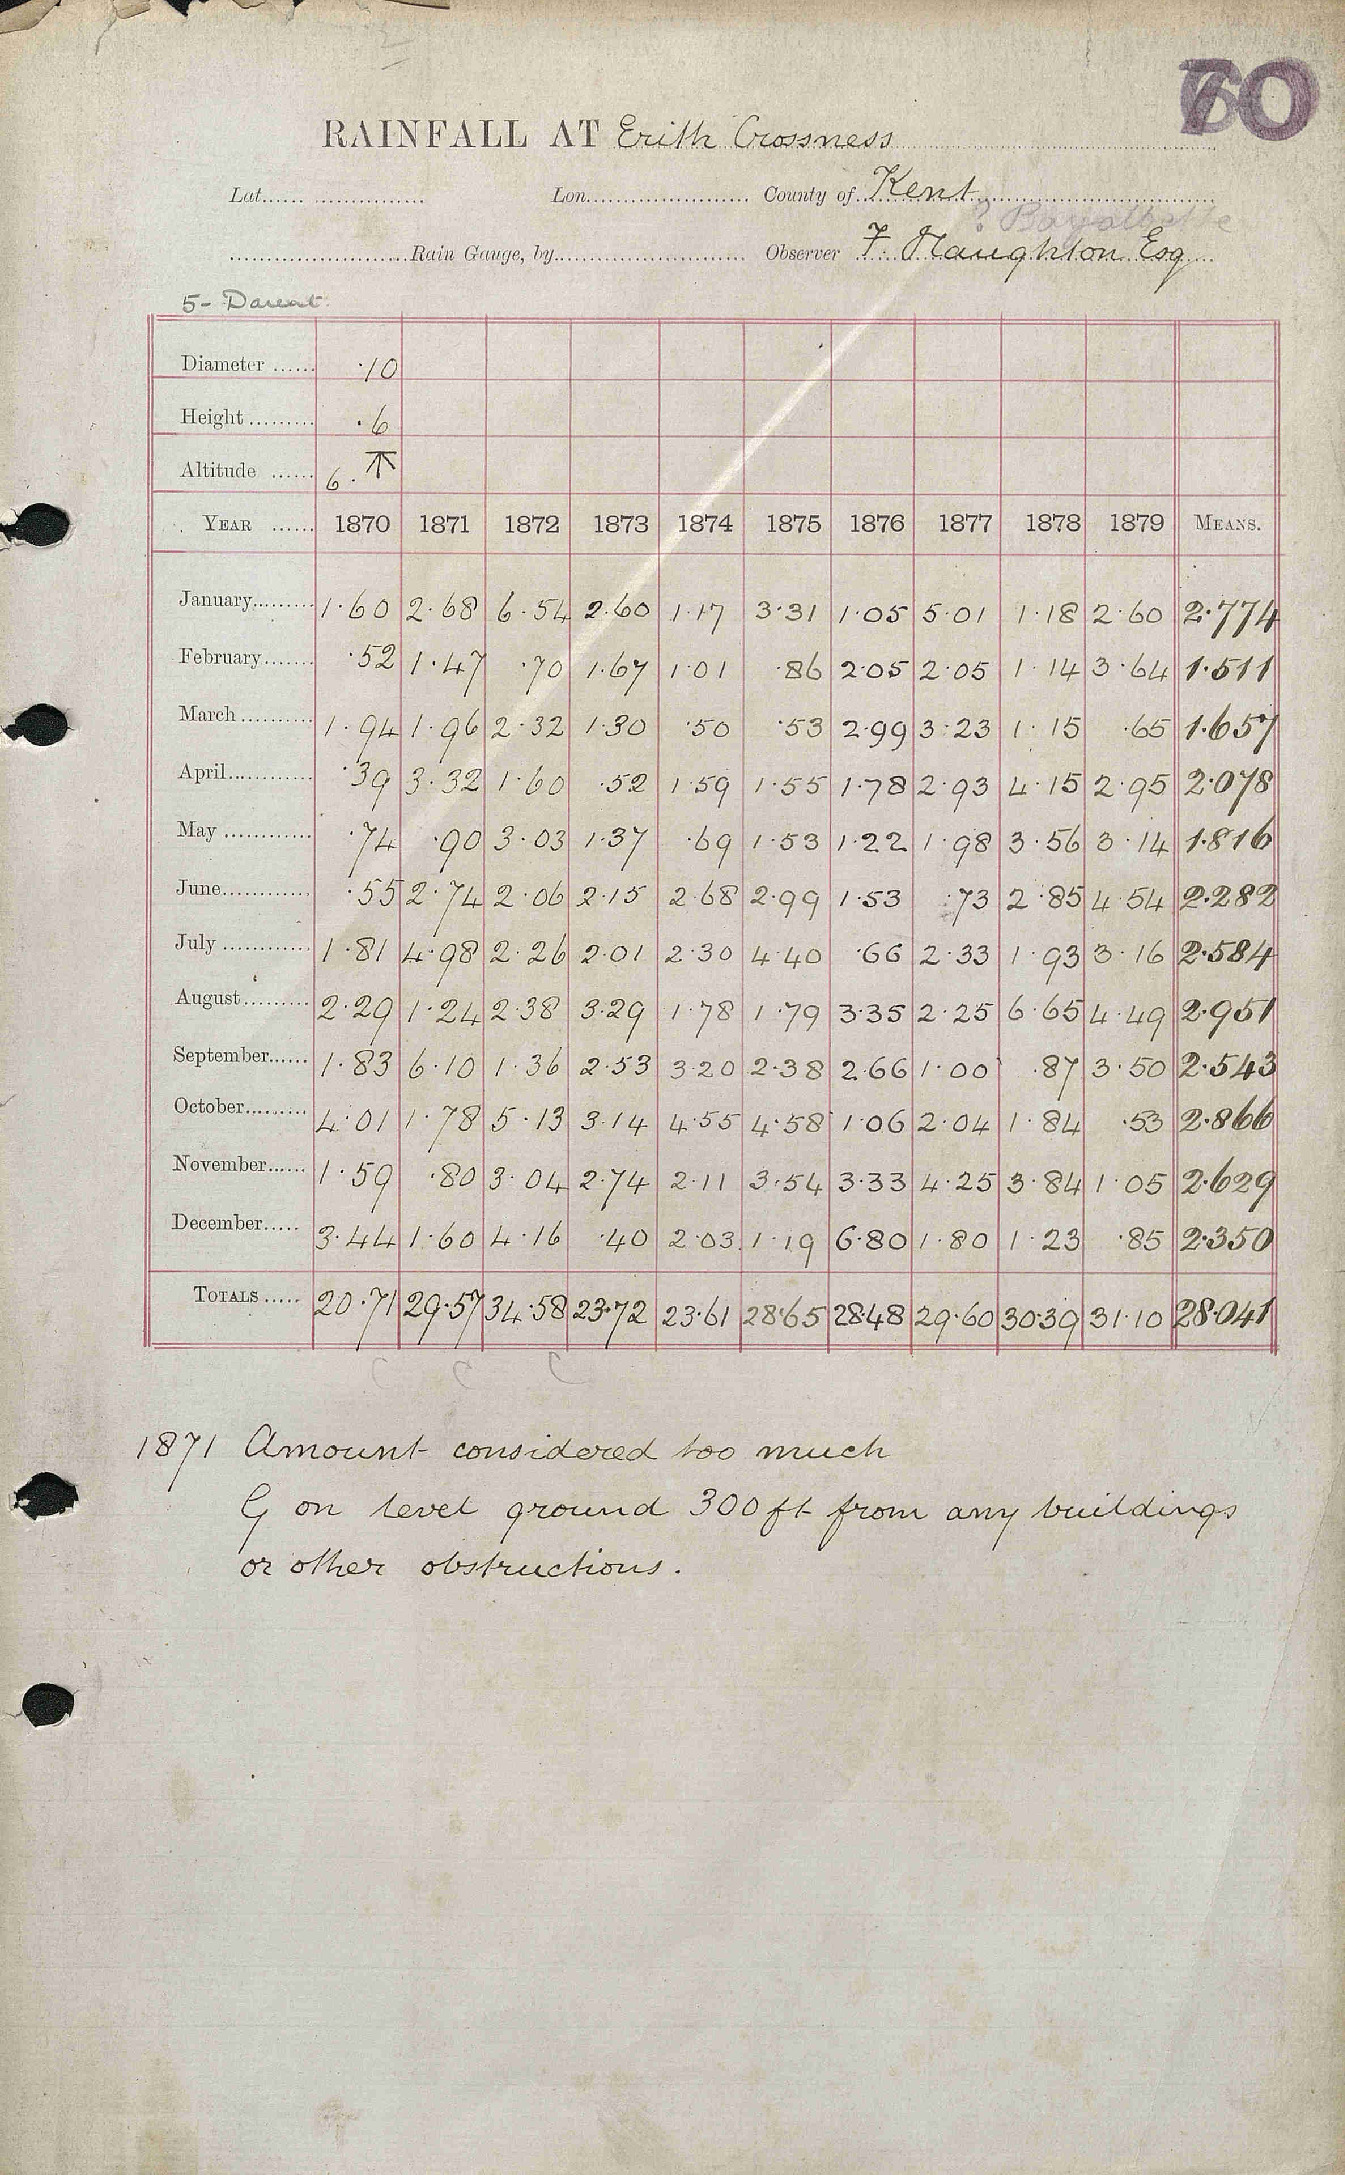 70
RAINFALL AT Erith Crossness
Lat. Lon. County of Kent
Rain Gauge, by Observer F. Houghton Esq
5- Darent
Diameter ·10
Height ·6
Altitude 6·
YEAR 1870 1871 1872 1873 1874 1875 1876 1877 1878 1879 MEANS.
January 1·60 2·68 6·54 2·60 1·17 3·31 1·05 5·01 1·18 2·60 2·774
February ·52 1·47 ·70 1·67 1·01 ·86 2·05 2·05 1·14 3·64 1·511
March 1·94 1·96 2·32 1·30 ·50 ·53 2·99 3·23 1·15 ·65 1·657
April ·39 3·32 1·60 ·52 1·59 1·55 1·78 2·93 4·15 2·95 2·078
May ·74 ·90 3·03 1·37 ·69 1·53 1·22 1·98 3·56 3·14 1·816
June ·55 2·74 2·06 2·15 2·68 2·99 1·53 ·73 2·85 4·54 2·282
July 1·81 4·98 2·26 2·01 2·30 4·40 ·66 2·33 1·93 3·16 2·584
August 2·29 1·24 2·38 3·29 1·78 1·79 3·35 2·25 6·65 4·49 2·951
September 1·83 6·10 1·36 2·53 3·20 2·38 2·66 1·00 ·87 3·50 2·543
October 4·01 1·78 5·13 3·14 4·55 4·58 1·06 2·04 1·84 ·53 2·866
November 1·59 ·80 3·04 2·74 2·11 3·54 3·33 4·25 3·84 1·05 2·629
December 3·44 1·60 4·16 ·40 2·03 1·19 6·80 1·80 1·23 ·85 2·350
TOTALS 20·71 29·57 34·58 23·72 23·61 28·65 28·48 29·60 30·39 31·10 28·041
C C C
1871 Amount considered too much
G on level ground 300ft from any buildings
or other obstructions.